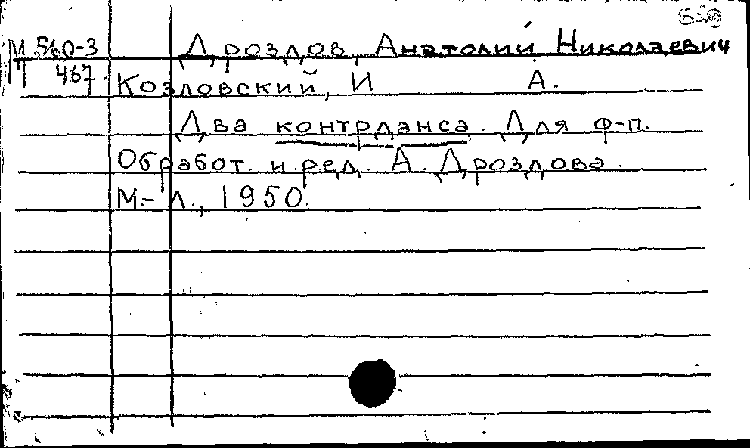 М 560-3 Дроздов, Анатолий Николаевич
П 467 Козловский, И А.
Два контрданса. Для ф-п.
Обработ. и ред. А. Дроздова.
М.-Л., 1950.